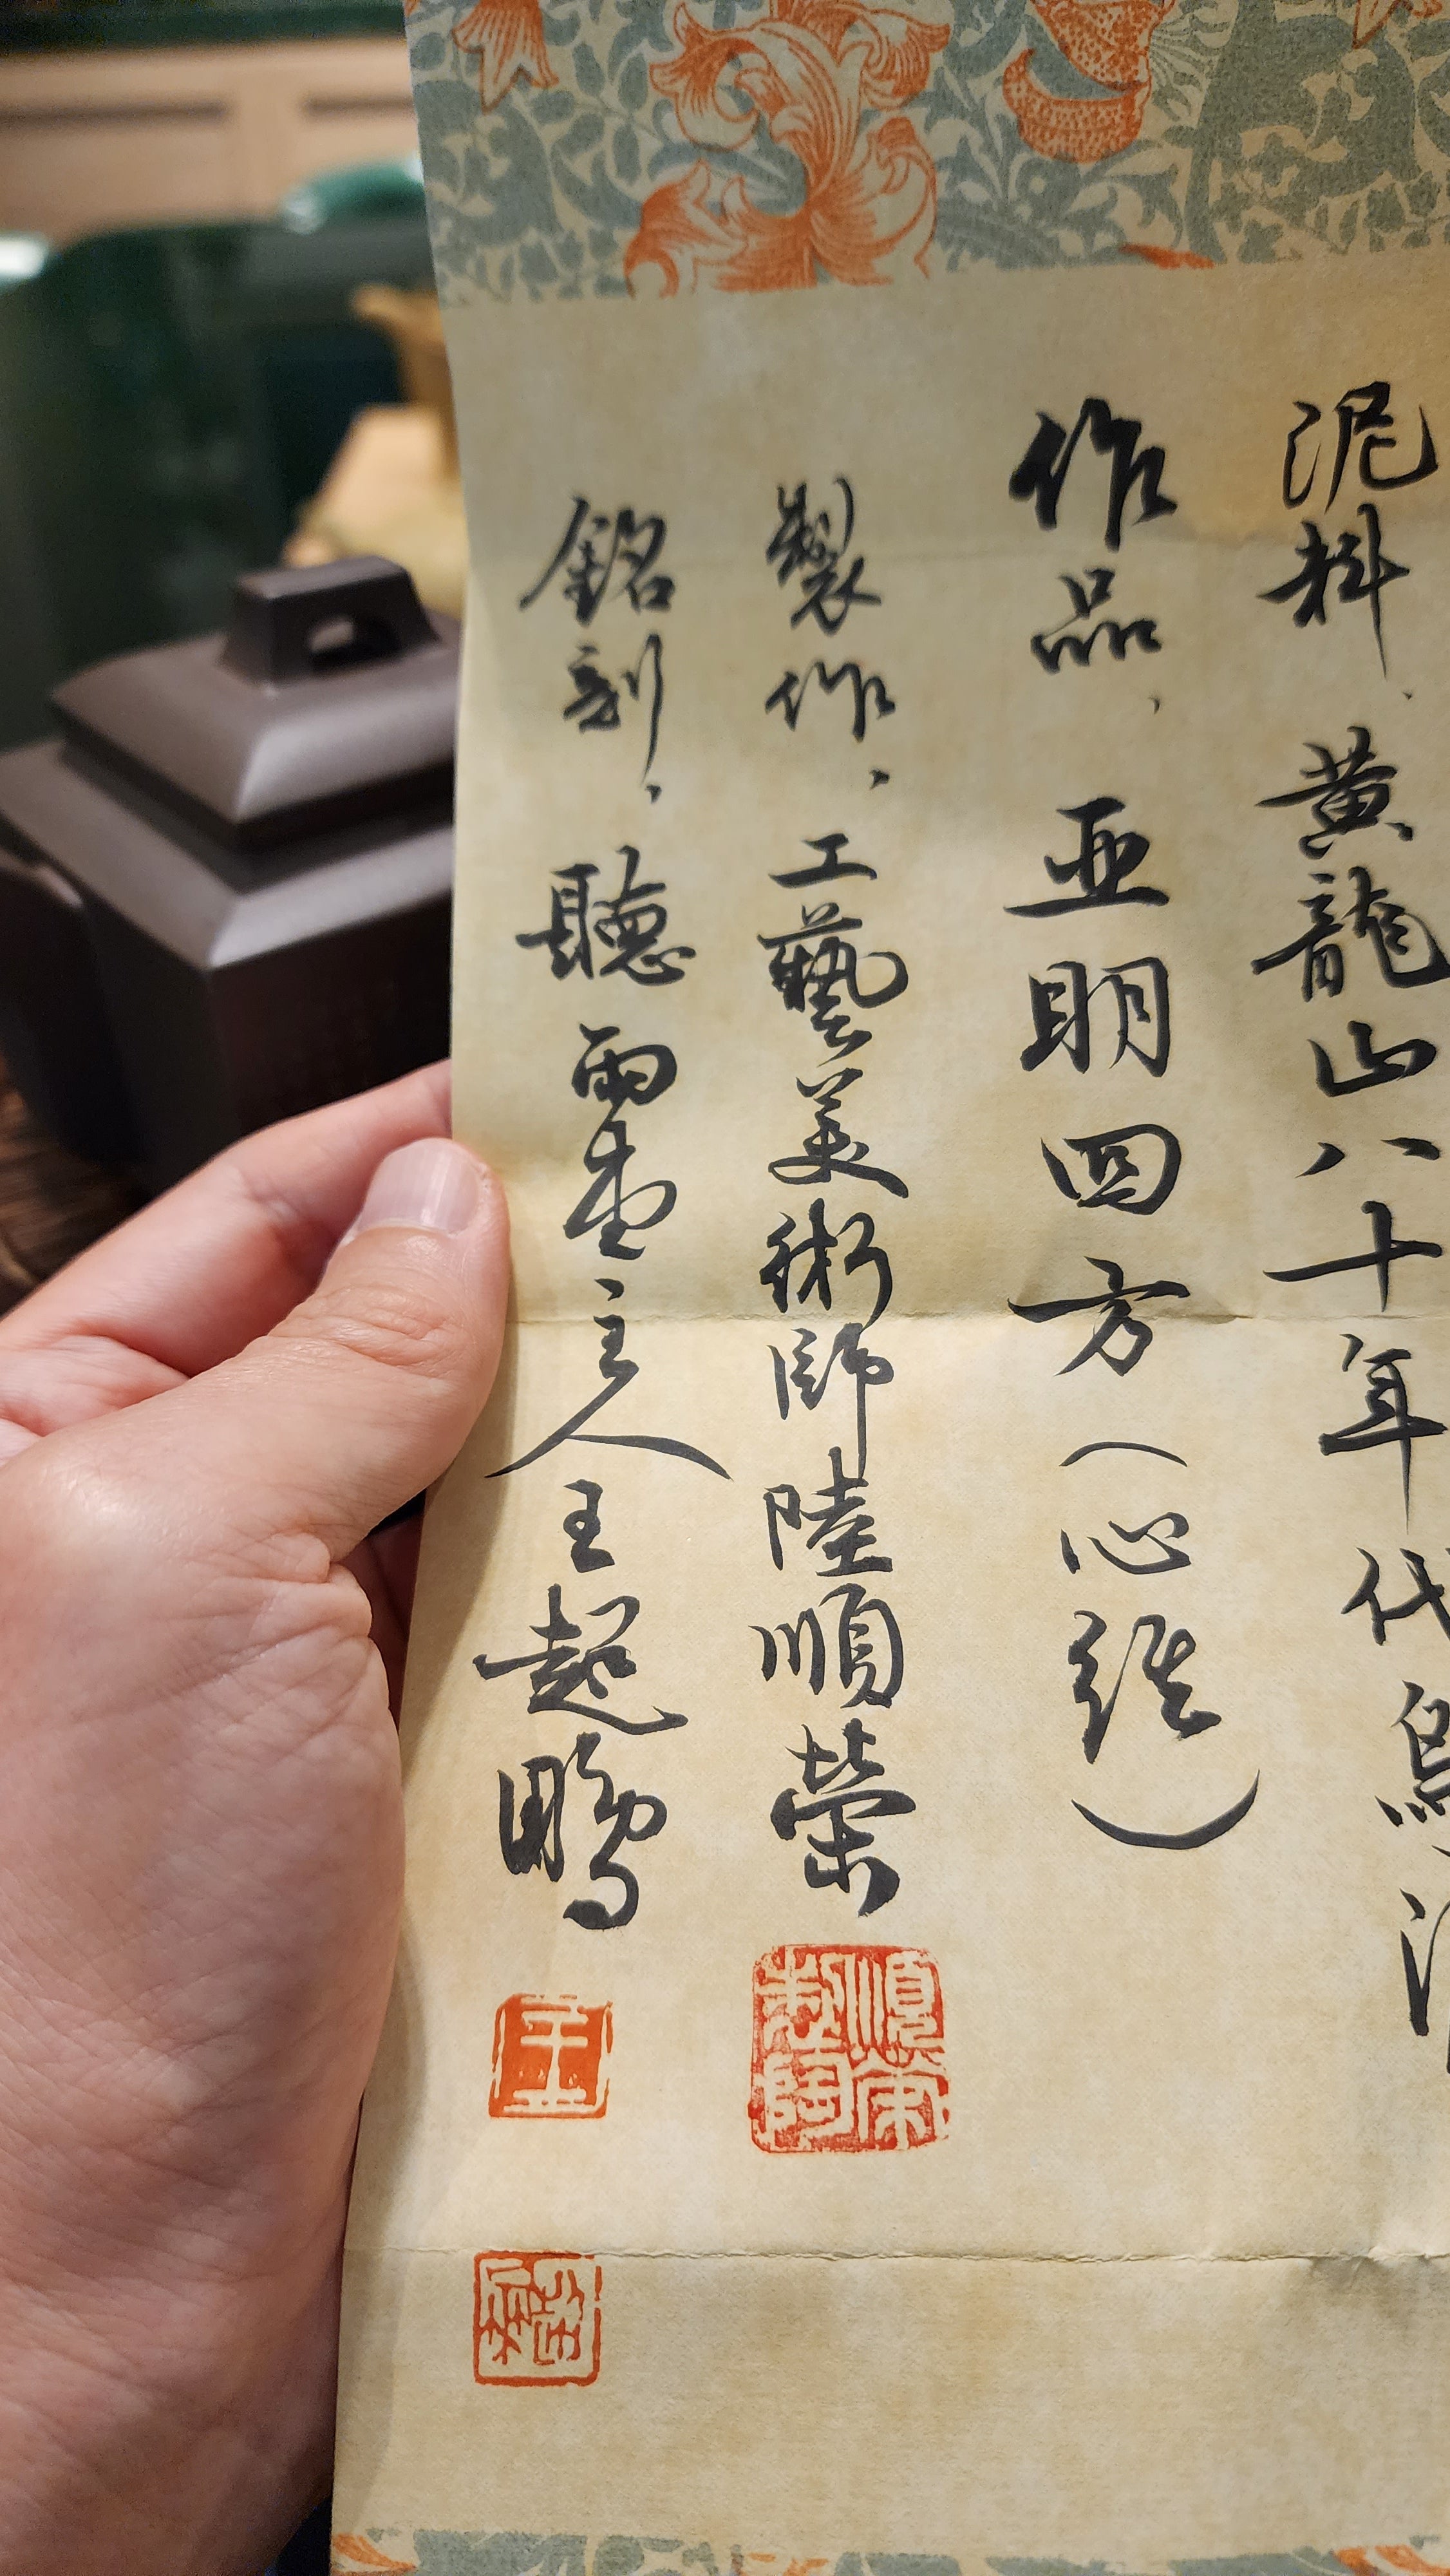 泥料、黃龍山八十年代烏泥
作品、亚明四方（心経）
製作、工藝美術師陸順榮
銘刻、聽雨堂主人王起鵬
順榮製陶
王